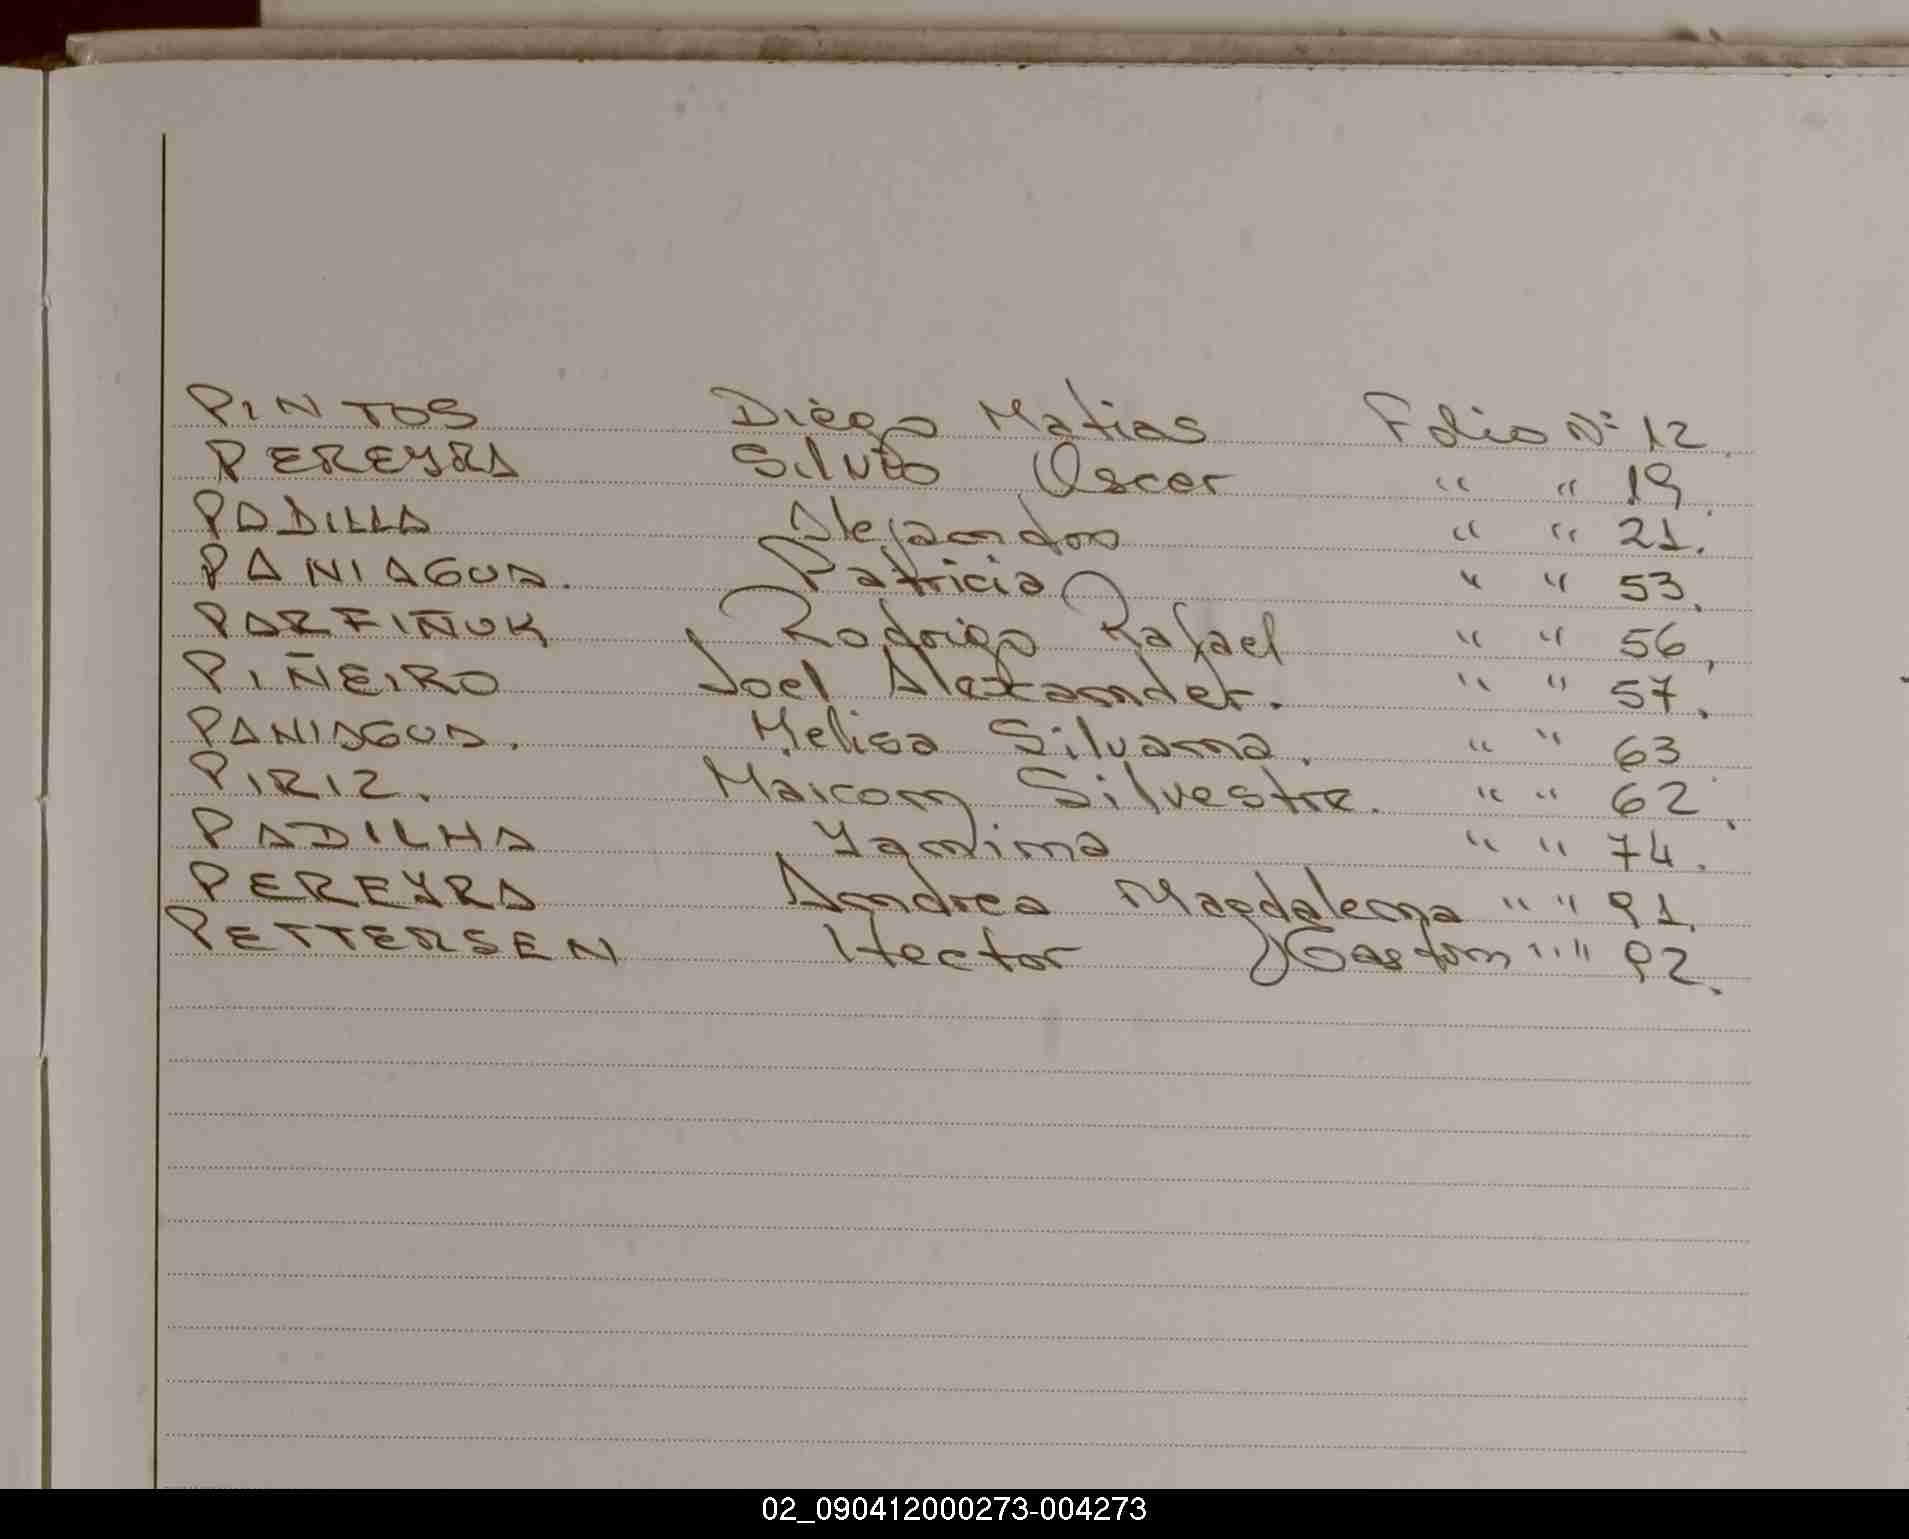 PINTOS Diego Matias Folio Nº 12.
PEREYRA Silvio Oscar " " 19.
PADILLA Alejandro " " 21.
PANIAGUA. Patricia " " 53.
PARFIÑUK Rodrigo Rafael " " 56.
PIÑEIRO Joel Alexander. " " 57.
PANIAGUA. Melisa Silvana. " " 63
PIRIZ. Maicom Silvestre. " " 62.
PADILHA Yamima " " 74.
PEREYRA Andrea Magdalena " " 91.
PETTERSEN Hector Gaston " " 92.
02_090412000273-004273